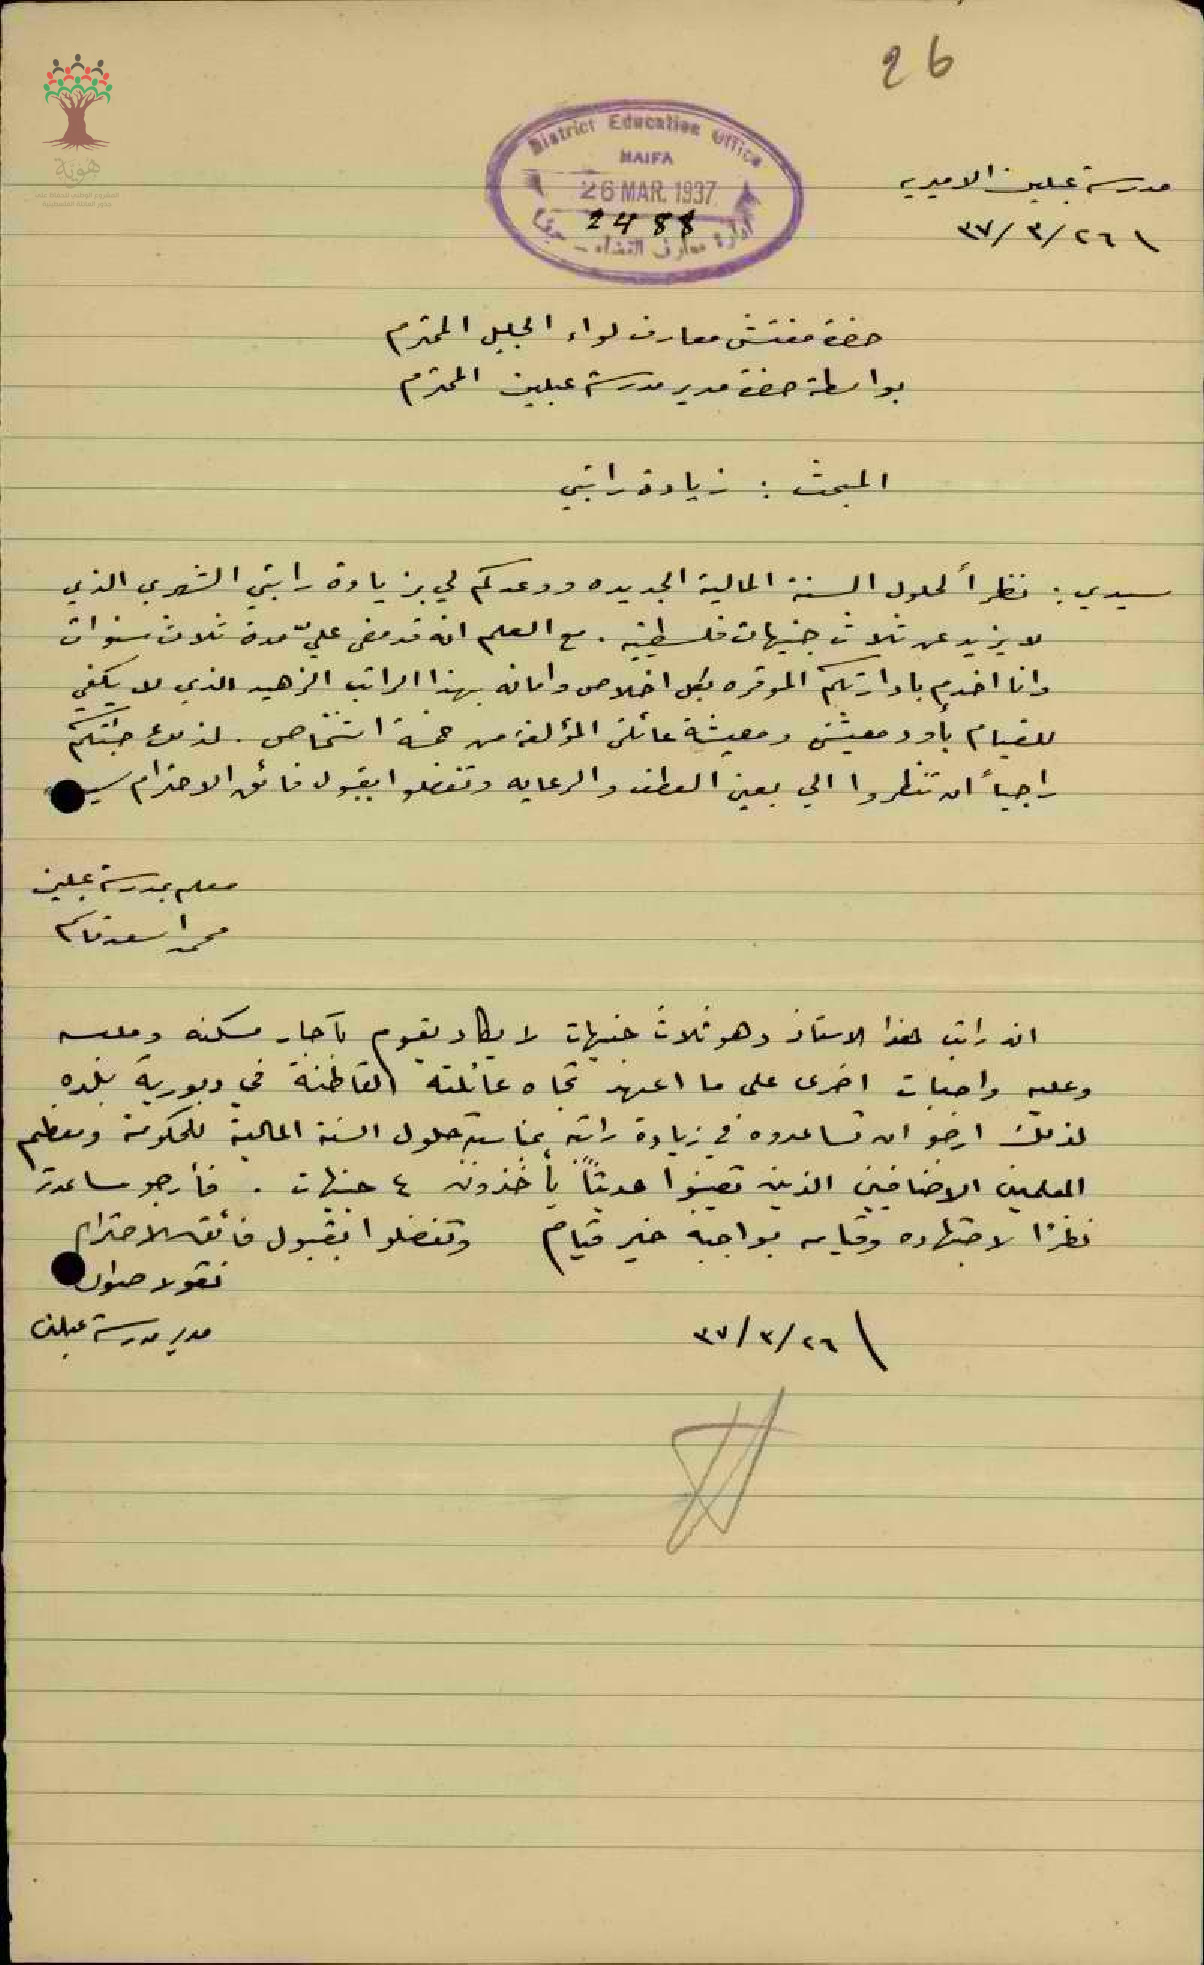 26
District Education Office
HAIFA
26 MAR. 1937
2488
ادارة معارف القضاء - حيفا
هوية
مدرسة عبلين الاميريه
٢٦/٣/٣٧
حضرة مفتش معارف لواء الجليل المحترم
بواسطة حضرة مدير مدرسة عبلين المحترم
المبحث : زيادة راتبي
سيدي : نظراً لحلول السنة المالية الجديده ووعدكم لي بزيادة راتبي الشهري الذي
لا يزيد عن ثلاث جنيهات فلسطينيه . مع العلم انه قد مضى عليّ مدة ثلاث سنوات
وانا اخدم بادارتكم الموقره بكل اخلاص وامانه بهذا الراتب الزهيد الذي لا يكفي
للقيام بأود معيشتي ومعيشة عائلتي المؤلفة من خمسة اشخاص . لذلك جئتكم
راجياً ان تنظروا الي بعين العطف والرعايه وتفضلوا بقبول فائق الاحترام
معلم بمدرسة عبلين
محمد اسعد
ان راتب هذا الاستاذ وهو ثلاث جنيهات لا يكاد يقوم بآجار مسكنه وملبسه
وعليه واجبات اخرى على ما اعهد تجاه عائلته القاطنة في دبورية بلده
لذلك ارجو ان تساعدوه في زيادة راتبه بمناسبة حلول السنة المالية للحكومة ومعظم
المعلمين الاضافيين الذين تعينوا حديثاً يأخذون ٤ جنيهات . فأرجو مساعدته
نظرًا لاجتهاده وقيامه بواجبه خير قيام وتفضلوا بقبول فائق الاحترام
نقولا
مدير مدرسة عبلين
٢٦/٣/٣٧